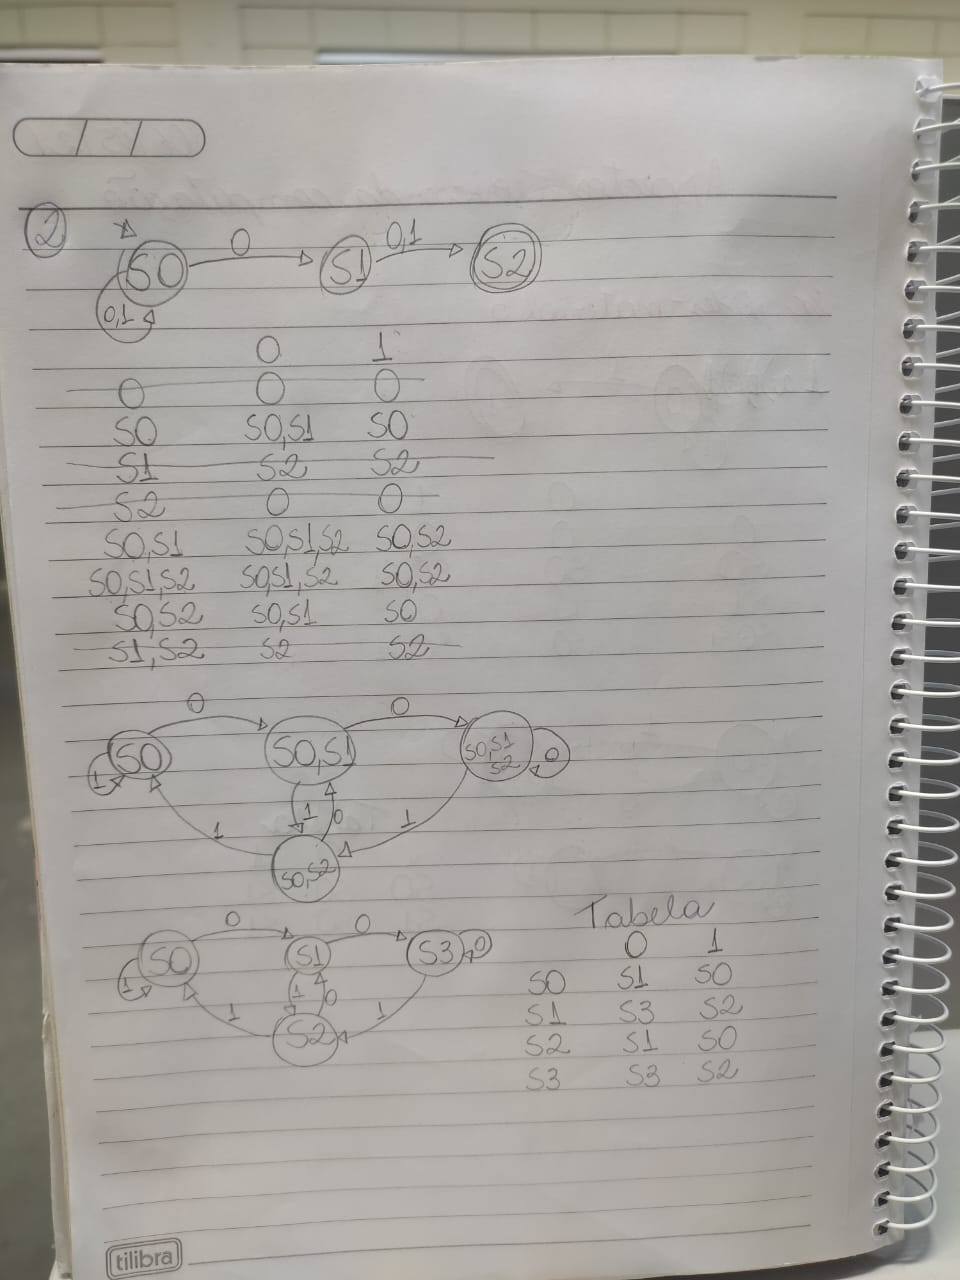 2
0 0,1
S0 S1 S2
0,1
0 1
0 0 0
S0 S0,S1 S0
S1 S2 S2
S2 0 0
S0,S1 S0,S1,S2 S0,S2
S0,S1,S2 S0,S1,S2 S0,S2
S0,S2 S0,S1 S0
S1,S2 S2 S2
0 0
S0 S0,S1 S0,S1
S2 0
1
1 0 1
1
S0,S2
Tabela
0 0
S0 S1 S3 0
1
1 0
1 1
S2
0 1
S0 S1 S0
S1 S3 S2
S2 S1 S0
S3 S3 S2
tilibra